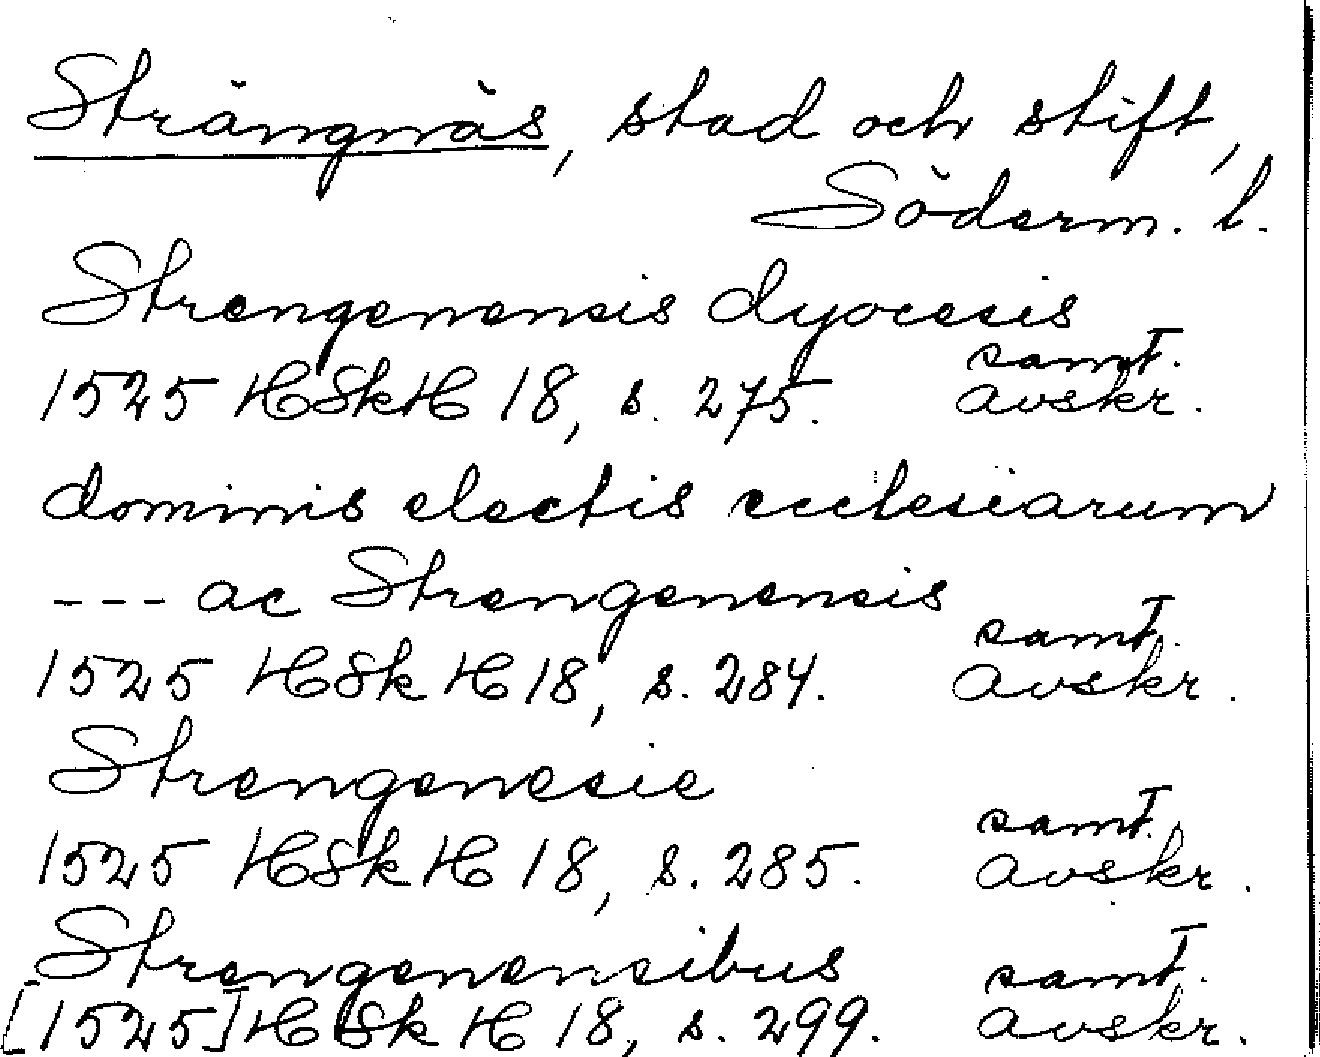 Strängnäs, stad och stift,
Söderm. l.
Strengenensis dyocesis
samt.
1525 HSkH 18, s. 275. avskr.
dominis electis ecclesiarum
--- ac Strengenensis
samt.
1525 HSkH 18, s. 284. avskr.
Strengenesie
samt.
1525 HSkH 18, s. 285. avskr.
Strengenensibus samt.
[1525] HSkH 18, s. 299. avskr.